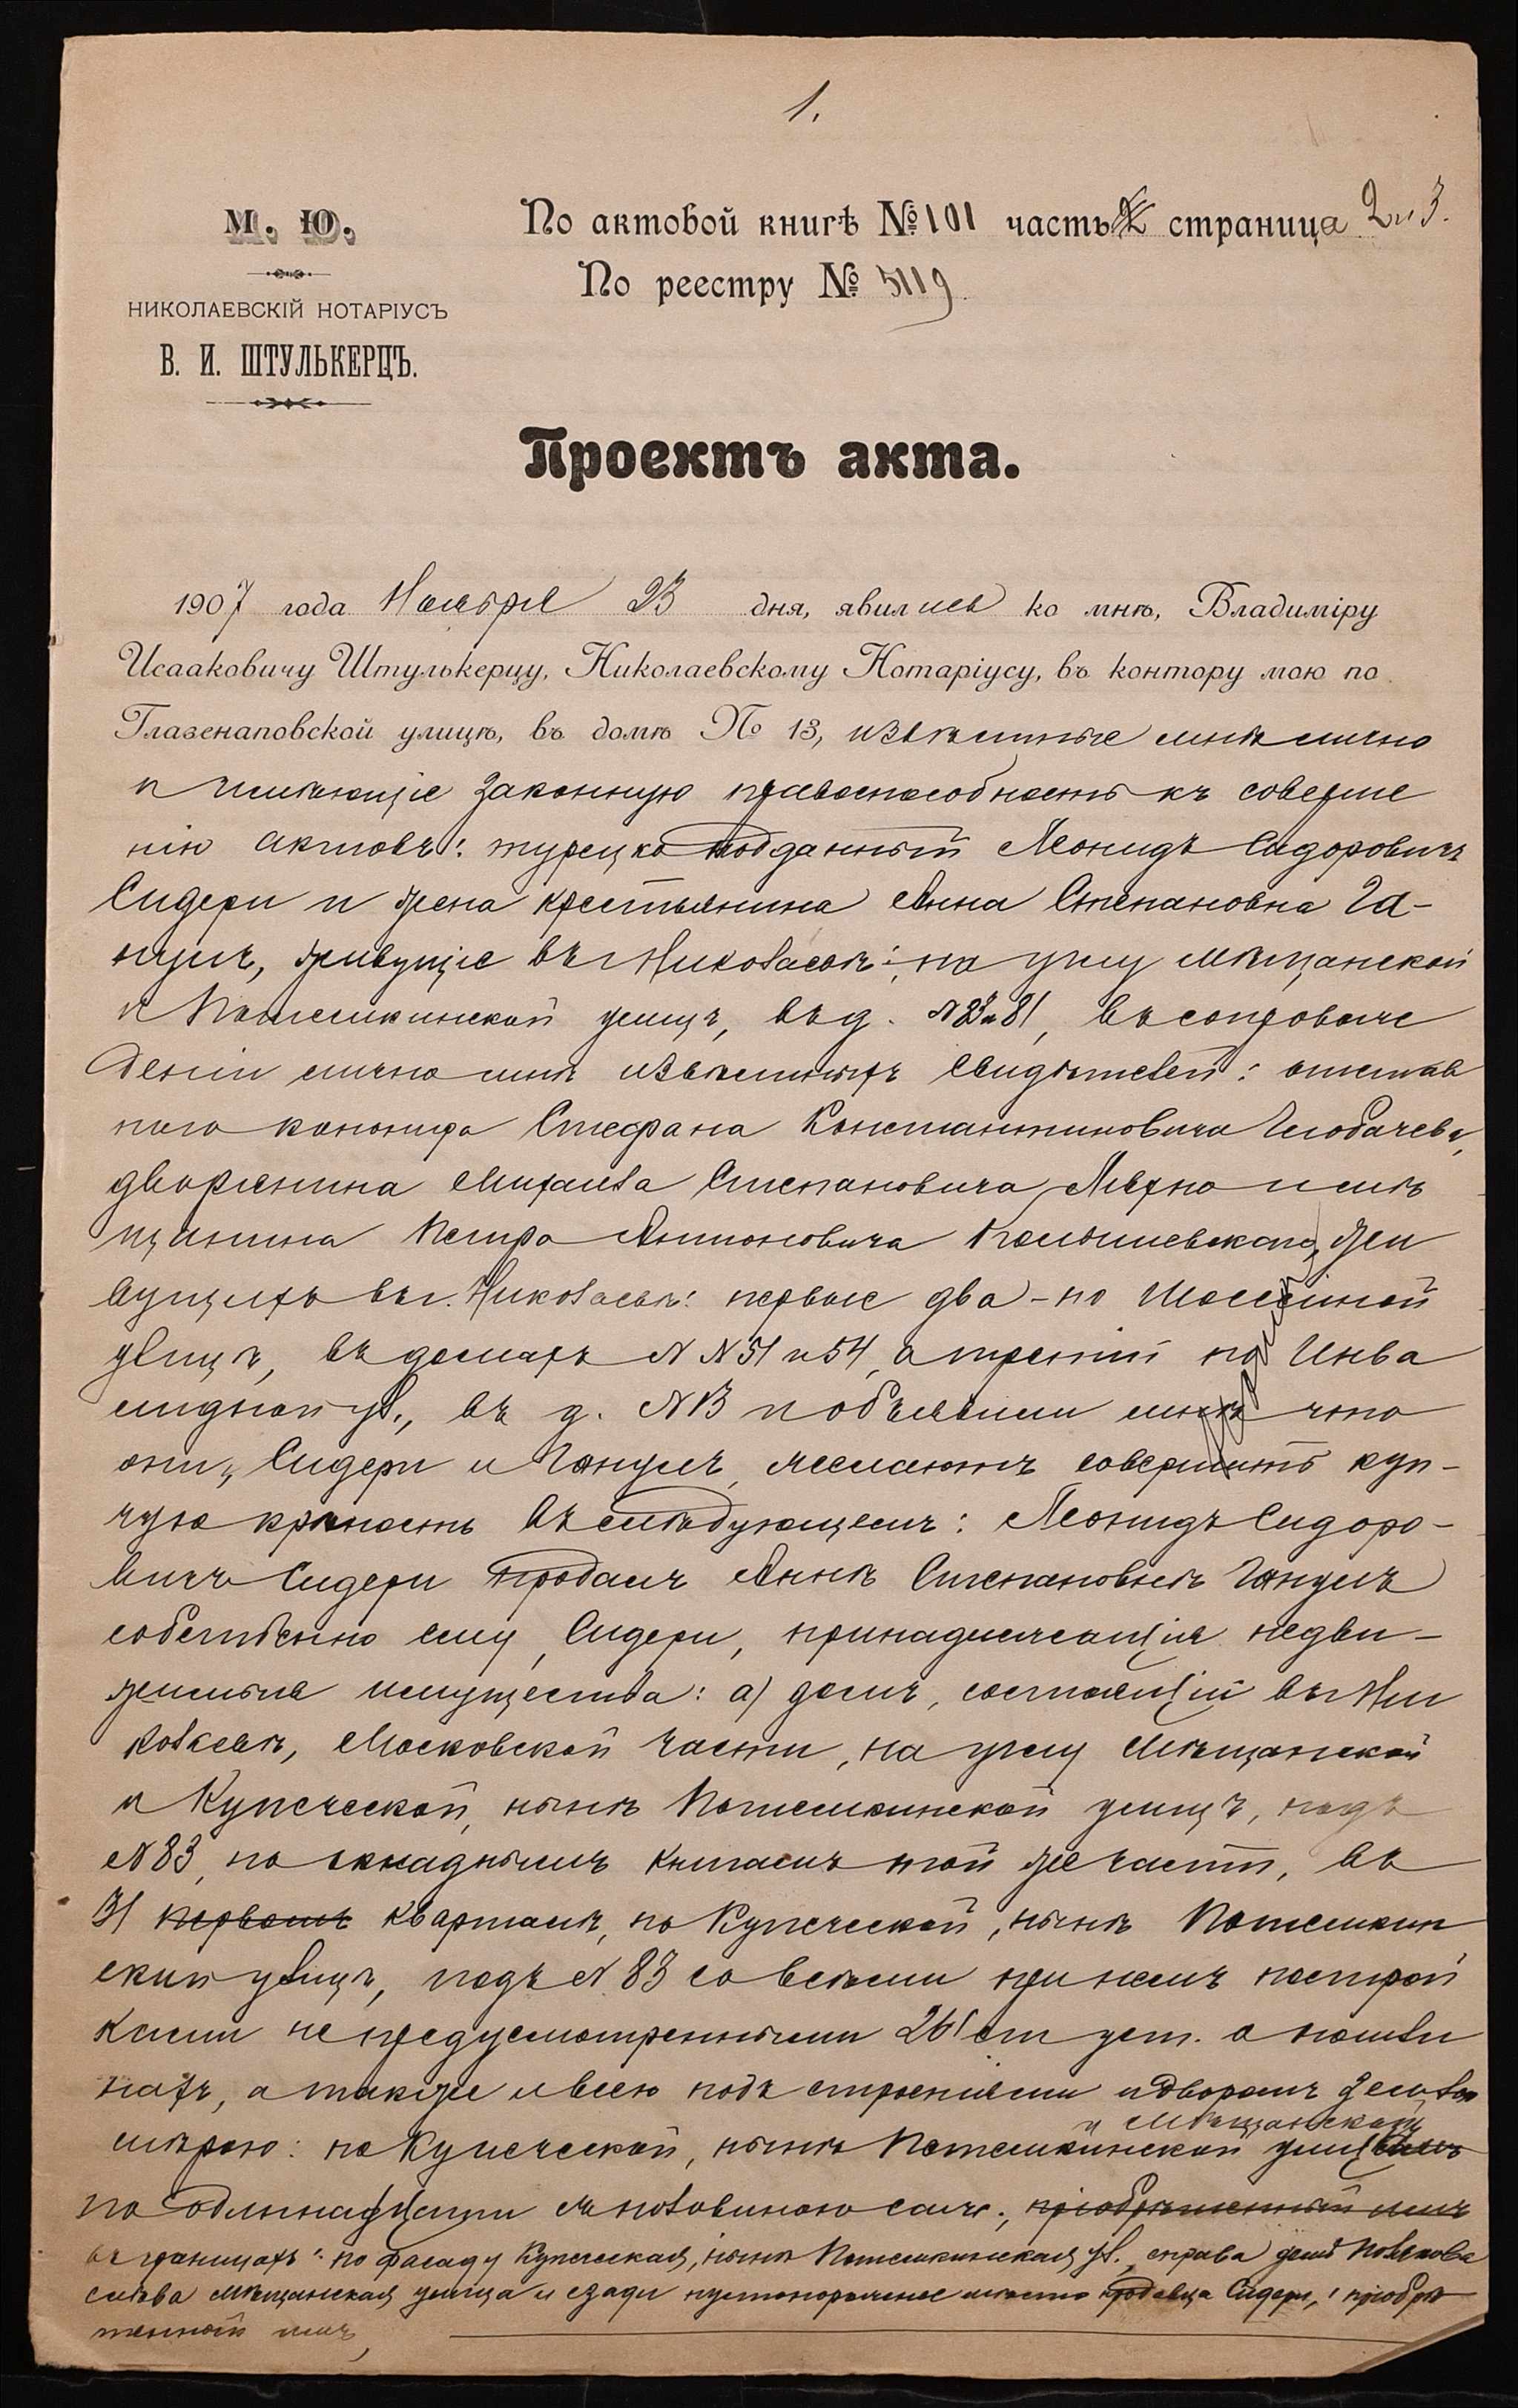 1.
М. Ю.
По актовой книгѣ № 101 часть страница 2 и 3.
По реестру № 5119
НИКОЛАЕВСКІЙ НОТАРІУСЪ
В. И. ШТУЛЬКЕРЦЪ.
Проектъ акта.
1907 года Ноября 23 дня, явились ко мнѣ, Владиміру
Исааковичу Штулькерцу, Николаевскому Нотаріусу, въ контору мою по
Глазенаповской улицѣ, въ домѣ № 13, извѣстные мнѣ лично
и имѣющіе законную правоспособность къ соверше
нію актовъ: турецко подданный Леонидъ Сидоровичъ
Сидери и жена крестьянина Анна Степановна Га-
нумъ, живущіе въ г. Николаевѣ: на углу Мѣщанской
и Потемкинской улицъ, въ д. № 83 и 81, въ сопровож
деніи лично мнѣ извѣстныхъ свидѣтелей: отстав
ного Стефана Константиновича
дворянина Михаила Степановича и мѣ
щанина Петра Антоновича жи
вущихъ въ г. Николаевѣ: первые два - по
улицѣ, въ домахъ № № 51 и 54, а третій по Инва
лидной ул., въ д. № 13 и объявили что
они, Сидери и Ганумъ, желаютъ совершить куп-
чую крѣпость въ слѣдующемъ: Леонидъ Сидоро-
вичъ Сидери продалъ Аннѣ Степановнѣ Ганумъ
собственно ему, Сидери, принадлежащія недви-
жимыя имущества: а) домъ, состоящій въ г. Ни
колаевѣ, Московской части, на углу Мѣщанской
и Купеческой, нынѣ Потемкинской улицъ, подъ
№ 83, по окладнымъ книгамъ той же части, въ
31 первомъ кварталѣ, по Купеческой, нынѣ Потемкин
ской улицѣ, подъ № 83 со всѣми при немъ построй
ками не предусмотренными 261 ст уст. о пошли
нахъ, а также и всею подъ строеніями и дворомъ землею
и Мѣщанской
мѣрою: по Купеческой, нынѣ Потемкинской
по одиннадцати съ половиною саж.; пріобрѣтенный имъ
въ границахъ: по фасаду Купеческая, нынѣ Потемкинская ул. справа домъ Полякова
слѣва Мѣщанская улица и сзади пустопорожнее мѣсто продавца Сидери, пріобрѣ
тенный имъ,